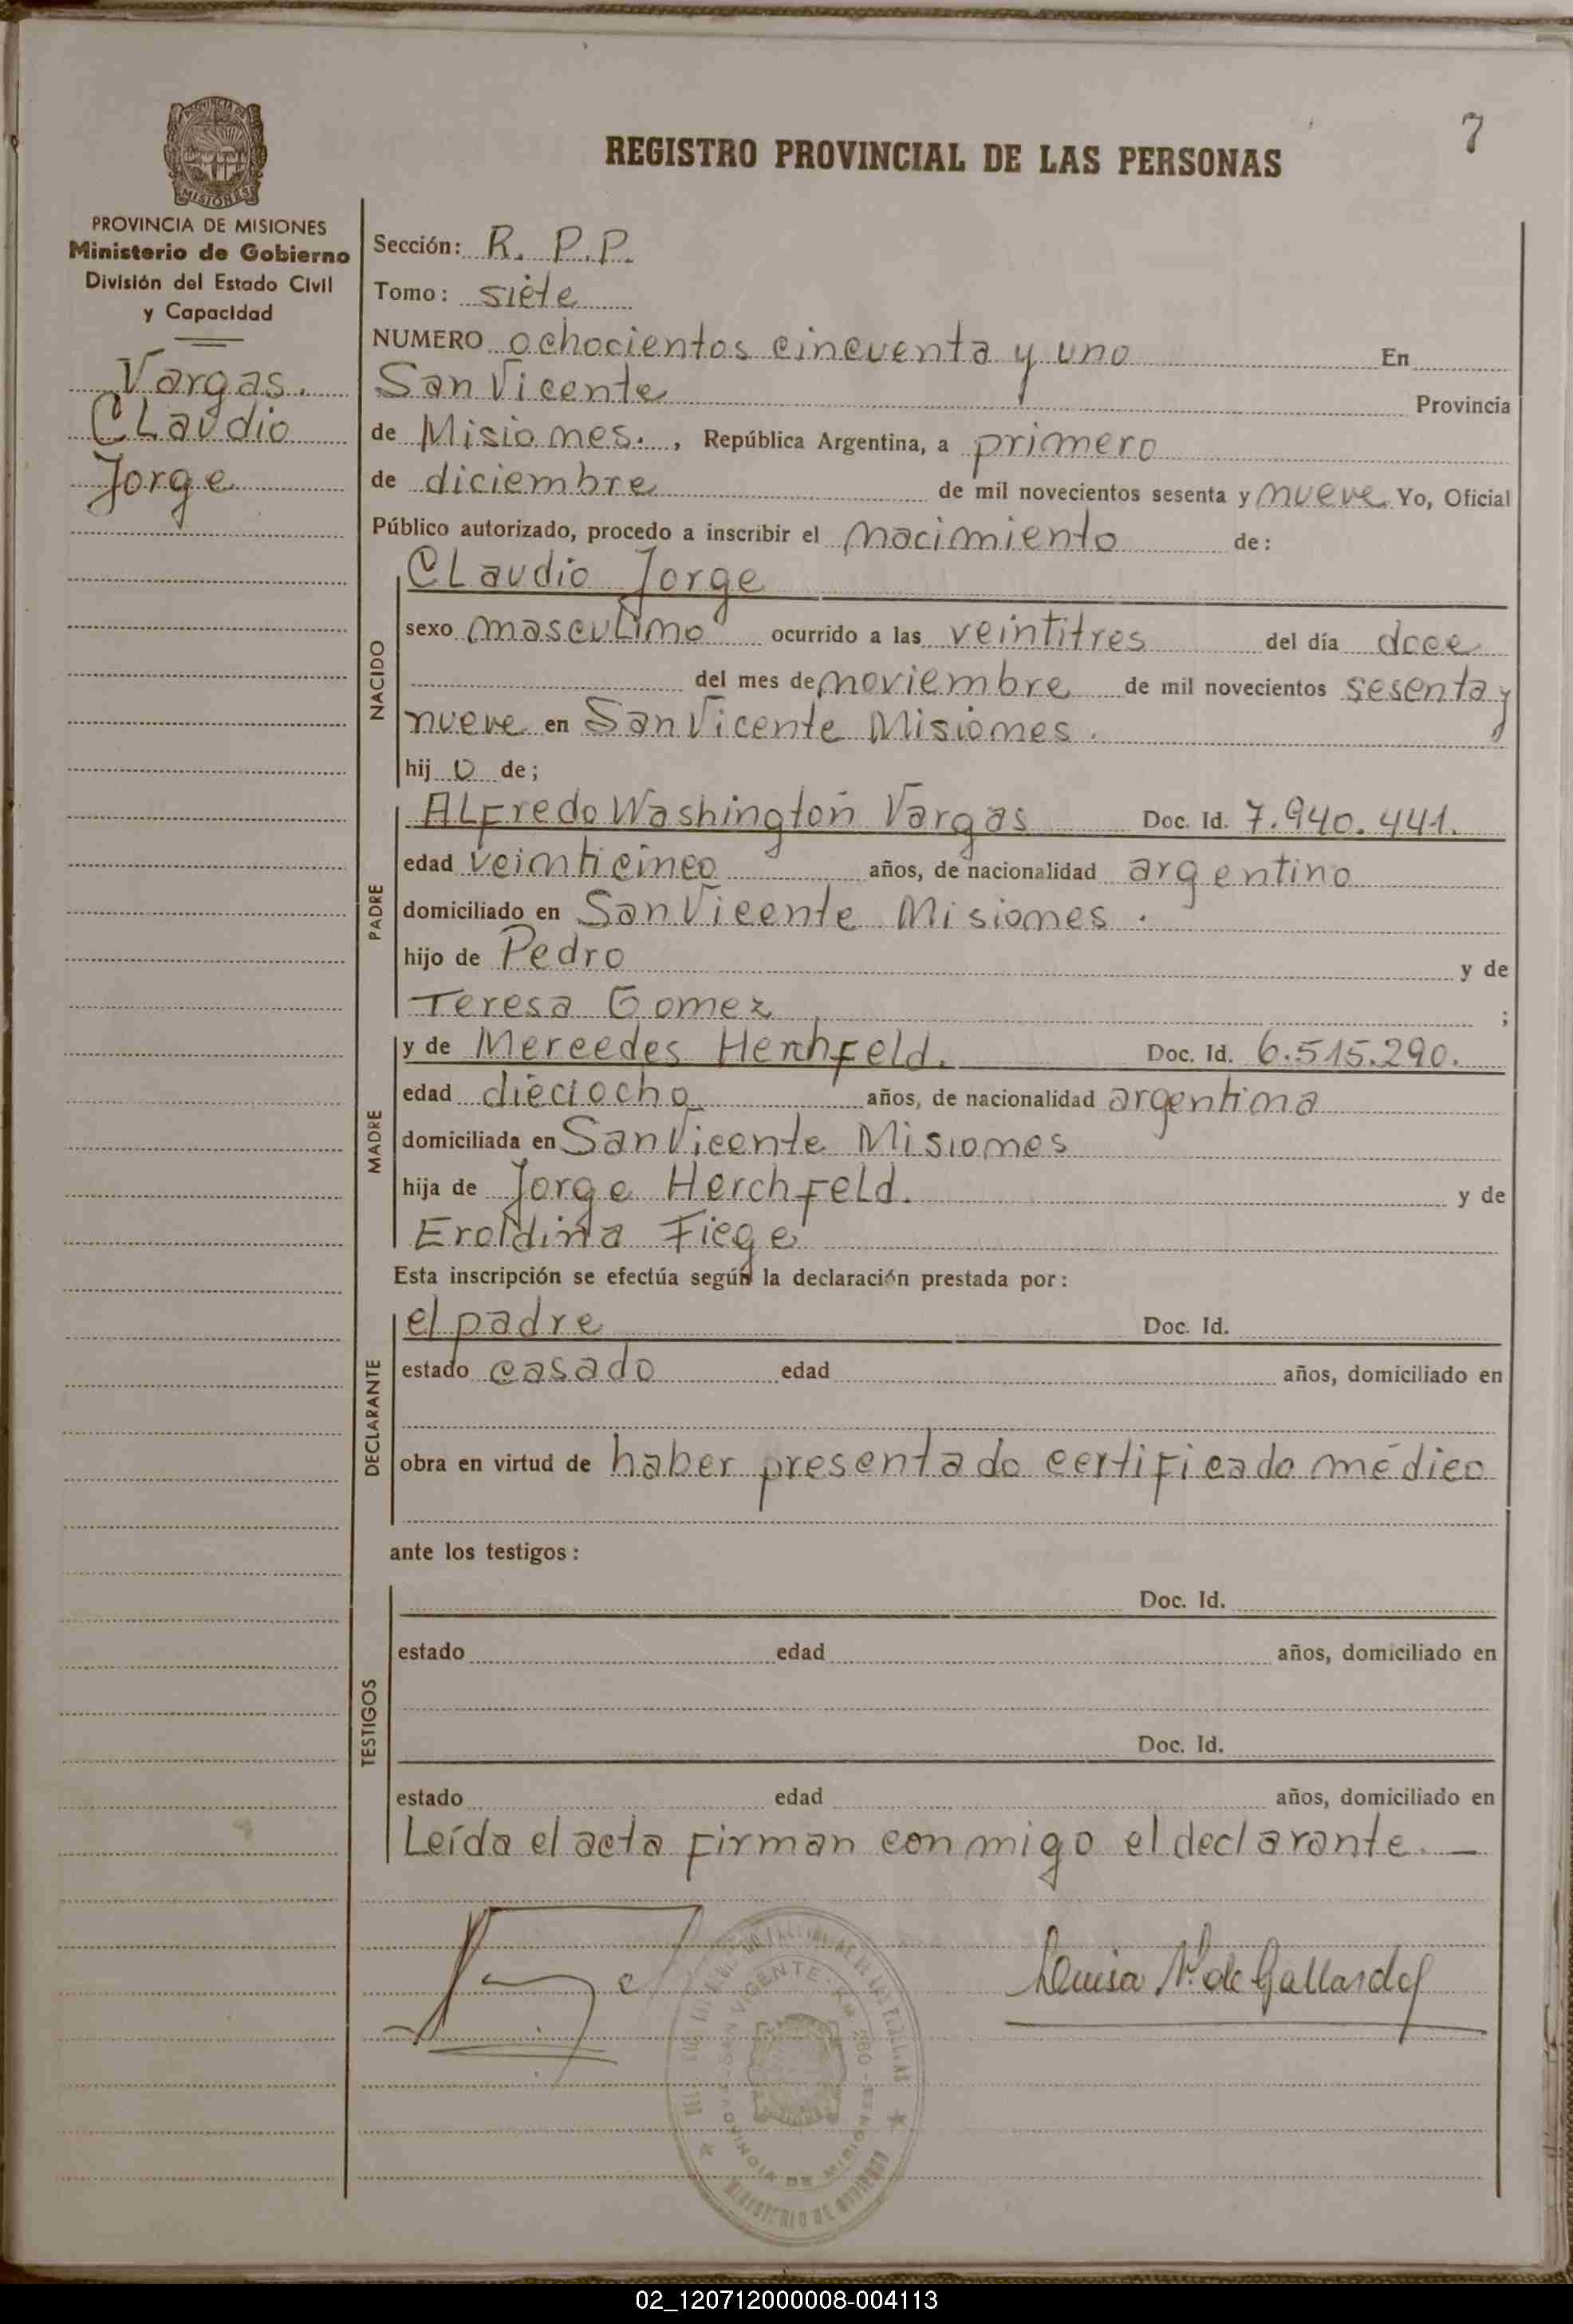 7
REGISTRO PROVINCIAL DE LAS PERSONAS
PROVINCIA DE MISIONES
Ministerio de Gobierno
División del Estado Civil
y Capacidad
Vargas.
CLaudio
Jorge
Sección: R. P.P.
Tomo: siete
NUMERO ochocientos cincuenta y uno En
San Vicente Provincia
de Misiones., República Argentina, a primero
de diciembre de mil novecientos sesenta y nueve Yo, Oficial
Público autorizado, procedo a inscribir el nacimiento de:
NACIDO
CLaudio Jorge
sexo masculino ocurrido a las veintitres del día doce
del mes de noviembre de mil novecientos sesenta y
nueve en San Vicente Misiones.
hij o de;
PADRE
ALfredo Washington Vargas Doc. Id. 7.940.441.
edad veinticinco años, de nacionalidad argentino
domiciliado en San Vicente Misiones.
hijo de Pedro y de
Teresa Gomez ;
MADRE
y de Mercedes Herchfeld. Doc. Id. 6.515.290.
edad dieciocho años, de nacionalidad argentina
domiciliada en San Vicente Misiones
hija de Jorge Herchfeld. y de
Eroldina Fiege
Esta inscripción se efectúa según la declaración prestada por:
DECLARANTE
el padre Doc. Id.
estado casado edad años, domiciliado en
obra en virtud de haber presentado certificado médico
ante los testigos:
TESTIGOS
Doc. Id.
estado edad años, domiciliado en
Doc. Id.
estado edad años, domiciliado en
Leída el acta firman conmigo el declarante. —
Louisa de Gallardo
SAN VICENTE
PROVINCIA DE MISIONES
MINISTERIO DE GOBIERNO
02_120712000008-004113